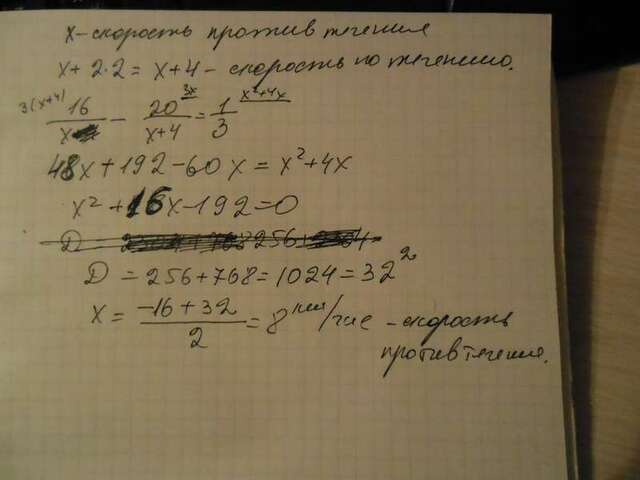 x – скорость против течения
x + 2·2 = x+4 – скорость по течению.
3(x+4) 16/x – 20/(x+4) 3x = 1/3 x²+4x
48x+192-60x = x²+4x
x² + 16x-192=0
D
D = 256+768=1024=32²
x = (-16+32)/2 = 8 км/час – скорость
против течения.